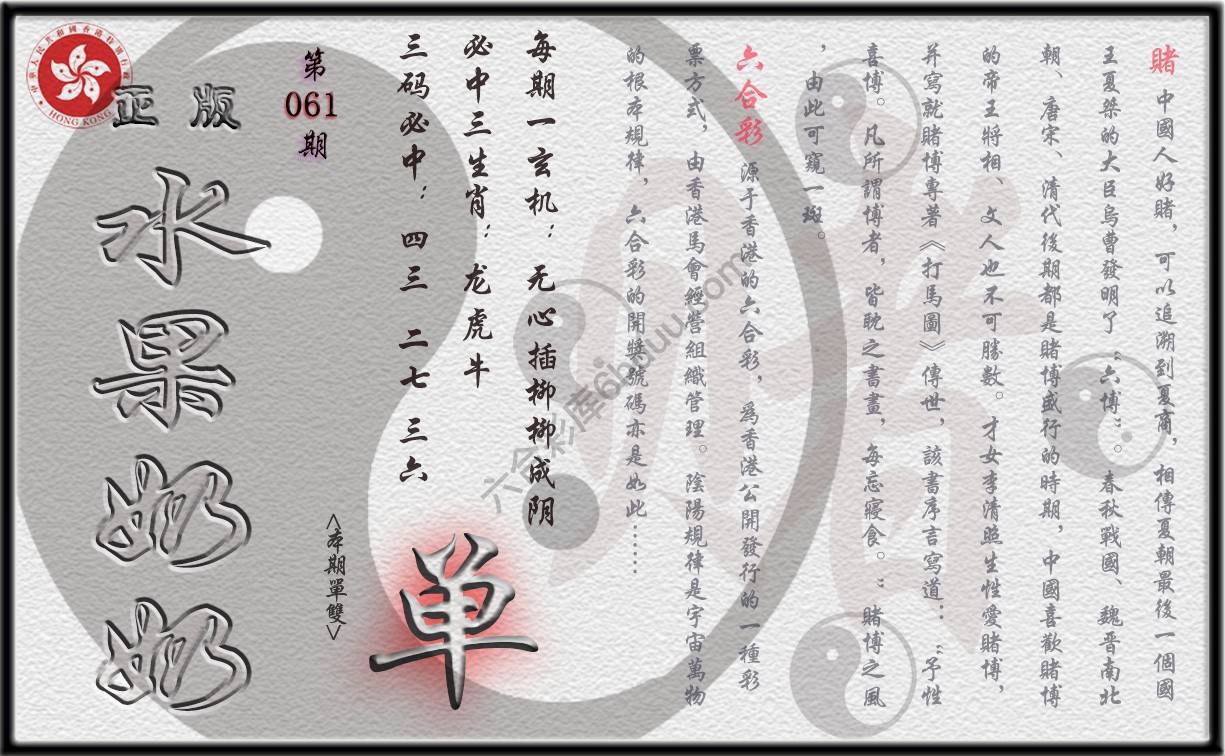 賭 中國人好賭，可以追溯到夏商，相傳夏朝最後一個國
王夏桀的大臣烏曹發明了“六博”。春秋戰國、魏晋南北
朝、唐宋、清代後期都是賭博盛行的時期，中國喜歡賭博
的帝王將相、文人也不可勝數。才女李清照生性愛賭博，
并寫就賭博專著《打馬圖》傳世，該書序言寫道：“予性
喜博。凡所謂博者，皆耽之書畫，每忘寢食。”賭博之風
，由此可窺一斑。
六合彩 源于香港的六合彩，爲香港公開發行的一種彩
票方式，由香港馬會經營組織管理。陰陽規律是宇宙萬物
的根本規律，六合彩的開獎號碼亦是如此……
每期一玄机：无心插柳柳成阴
必中三生肖：龙虎牛
三码必中：四三 二七 三六
<本期單雙>
单
第
061
期
正版
水果奶奶
中華人民共和國香港特別行政區
HONG KONG
六合彩库6hduu.com